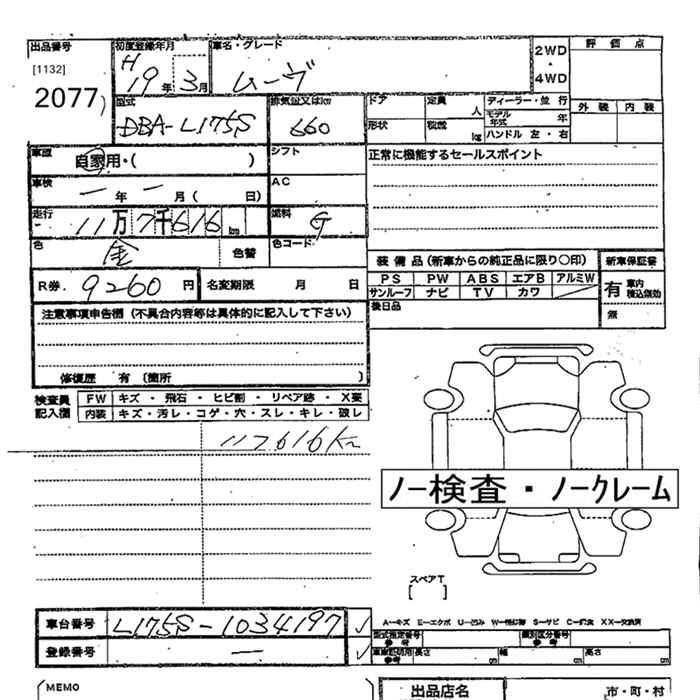 出品番号
[1132]
2077
初度登録年月
H 19年 3月
車名・グレード
ムーヴ
2WD
・
4WD
評価点
外装 内装
型式
DBA-L175S
排気量又はkm
660
ドア
形状
定員 人
積載 kg
ディーラー・並行
モデル年式 年
ハンドル 左・右
車歴
自家用・( )
シフト
正常に機能するセールスポイント
車検
一年一月( 日)
AC
走行
11万7千616km
燃料
G
色
金
色替
色コード
R券. 9260円
名変期限 月 日
装備品(新車からの純正品に限り○印)
新車保証書
PS PW ABS エアB アルミW
サンルーフ ナビ TV カワ
有 車内積込有効
無
後日品
注意事項申告欄(不具合内容等は具体的に記入して下さい)
修復歴 有(箇所 )
検査員記入欄
FW キズ・飛石・ヒビ割・リペア跡・X要
内装 キズ・汚レ・コゲ・穴・スレ・キレ・破レ
117616Km
ノー検査・ノークレーム
スペアT
[ ]
車台番号
L175S-1034197
登録番号
一
A-キズ E-エクボ U-凹ミ W-補修跡 S-サビ C-腐食 XX-交換済
型式指定番号 参考
類別区分番号 参考
車庫証明用 参考
長さ cm
幅 cm
高さ cm
MEMO
出品店名
市・町・村